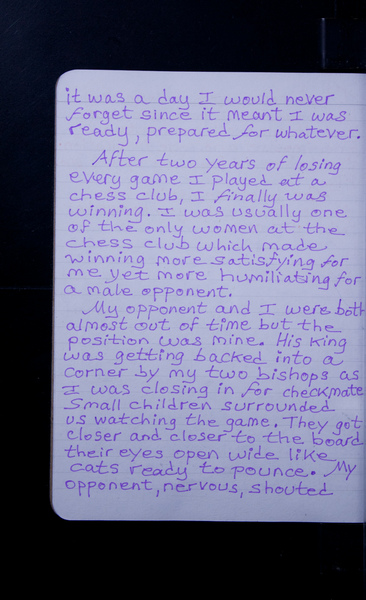 it was a day I would never
forget since it meant I was
ready, prepared for whatever.
After two years of losing
every game I played at a
chess club, I finally was
winning. I was usually one
of the only women at the
chess club which made
winning more satisfying for
me yet more humiliating for
a male opponent.
My opponent and I were both
almost out of time but the
position was mine. His King
was getting backed into a
corner by my two bishops as
I was closing in for checkmate
Small children surrounded
us watching the game. They got
closer and closer to the board
their eyes open wide like
cats ready to pounce. My
opponent, nervous, shouted